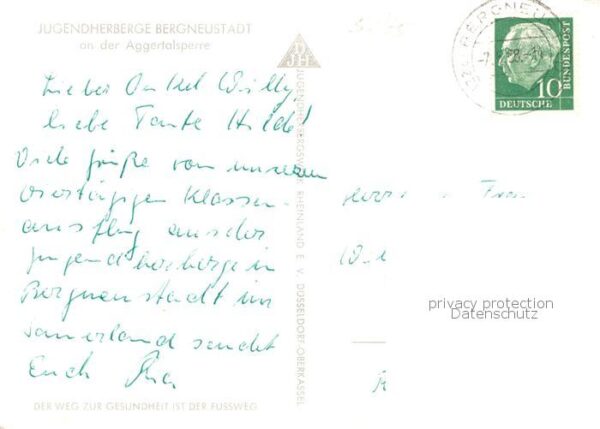 JUGENDHERBERGE BERGNEUSTADT
an der Aggertalsperre
Lieber Onkel Willy,
liebe Tante Hilde!
Viele Grüße von unserem
Klassen-
ausflug aus der
Jugendherberge in
Bergneustadt im
Sauerland sendet
Euch
DER WEG ZUR GESUNDHEIT IST DER FUSSWEG
DJH
JUGENDHERBERGSWERK RHEINLAND E. V. DÜSSELDORF-OBERKASSEL
BERGNEU
10
DEUTSCHE
BUNDESPOST
privacy protection
Datenschutz